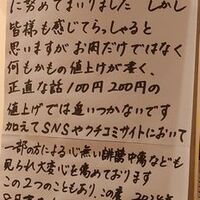 に努めてまいりました しかし
皆様も感じてらっしゃると
思いますがお肉だけではなく
何もかもの値上げが凄く、
正直な話100円200円の
値上げでは追いつかないです
加えてSNSやクチコミサイトにおいて
一部の方による心無い誹謗中傷なども
見られ大変心も痛めております
この2つのこともあり、この度 2024年